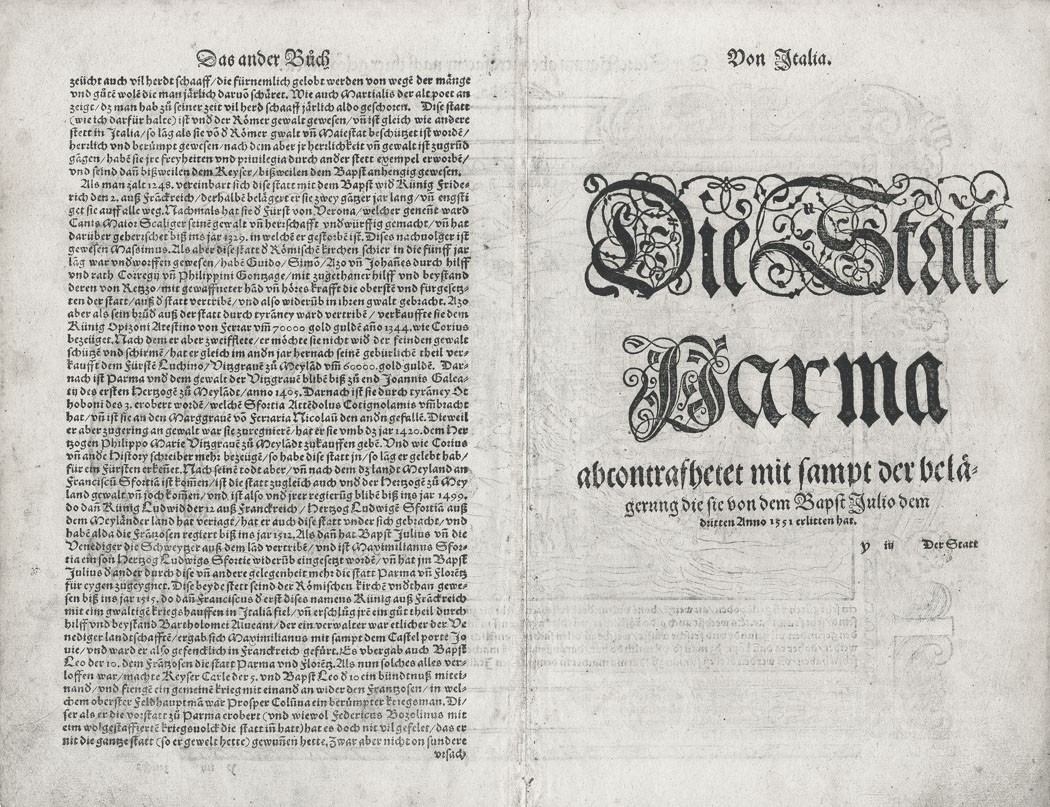 Das ander Bůch
zeücht auch vil herdt schaaff/die fürnemlich gelobt werden von wegē der mänge
vnd gůtē wolē die man järlich daruō schäret. Wie auch Martialis der alt poet an
zeigt/dz man hab zů seiner zeit vil herd schaaff järlich aldo geschoren. Dise statt
(wie ich darfür halte) ist vnd der Römer gwalt gewesen/vñ ist gleich wie andere
stett in Italia/so lāg als sie võ đ Römer gwalt vñ Maiestat beschützet ist wordē/
herrlich vnd berümpt gewesen/nach dem aber jr herrlichkeit vñ gewalt ist zugrūd
gägen/habē sie jre freyheiten vnd priuilegia durch ander stett exempel erworbē/
vnd seind dañ bißweilen dem Keyser/bißweilen dem Bapst anhengig gewesen.
Als man zalt 1248. vereinbart sich dise statt mit dem Bapst wid Künig Fride-
rich den 2. auß Franckreich/derhalbē belägert er sie zwey gātzer jar lang/vñ engsti
get sie auff alle weg. Nachmals hat sie đ Fürst von Verona/welcher geneñt ward
Canis Maior Scaliger seinē gewalt vñ herrschafft vndwürffig gmacht/vñ hat
darüber geherrschet biß ins jar 1329. in welchē er gestorbē ist. Dises nachuolger ist
gewesen Massimus. Als aber dise statt đ Römischē kirchen schier in die fünff jar
lāg war vndworffen gewesen/habē Guido/Simō/Azo vñ Johañes durch hilff
vnd rath Corregij vñ Philippini Gontzage/mit zugethaner hilff vnd beystand
deren von Retzo/mit gewaffneter hād vñ hōres krafft die oberstē vnd fürgesetz-
ten der statt/auß đ statt vertribē/vnd also widerüb in ihren gwalt gebracht. Azo
aber als sein brůd auß der statt durch tyräney ward vertribē/verkauffte sie dem
Künig Opizoni Atestino von Ferrar vm 70000 gold guldē año 1344. wie Corius
bezeüget. Nach dem er aber zweifflete/er möchte sie nicht wid der feinden gewalt
schützē vnd schirmē/hat er gleich im andn jar hernach seinē gebürlichē theil ver-
kaufft dem Fürstē Luchino/Vitzgrauē zů Meyläd vm 60000. gold guldē. Dar-
nach ist Parma vnd dem gewalt der Vitzgrauē blibē biß zů end Joannis Galea-
tij des ersten Hertzogē zů Meylādt/anno 1405. Darnach ist sie durch tyräney Ot
hoboni des 3. erobert wordē/welchē Sfortia Attēdolus Cotignolamis vmbracht
hat/vñ ist sie an den Marggrauē vō Ferraria Nicolaū den andn gefallē. Dieweil
er aber zůgering an gewalt war sie zuregnierē/hat er sie vmb dz jar 1420. dem Her
tzogen Philippo Marie Vitzgrauē zů Meylādt zůkauffen gebē. Vnd wie Corius
vñ andē History schreiber mehr bezeügē/so habe dise statt jn/so lāg er gelebt hab/
für ein Fürsten erkeñet. Nach seinē todt aber/vñ nach dem dz landt Meyland an
Franciscū Sfortiā ist komen/ist die statt zugleich auch vnd der Hertzogē zů Mey
land gewalt vñ joch komen/vnd ist also vnd jrer regierūg blibē biß ins jar 1499.
do dañ Künig Ludwid der 12 auß Franckreich/Hertzog Ludwigē Sfortiā auß
dem Meyländer land hat veriagt/hat er auch dise statt vnder sich gebracht/vnd
habē alda die Frantzosen regiert biß ins jar 1512. Als dañ hat Bapst Julius vñ die
Venediger die Schweytzer auß dem läd vertribē/vnd ist Maximilianus Sfor-
tia ein son Hertzog Ludwigs Sfortie widerüb eingesetzt wordē/vñ hat jm Bapst
Julius đ ander durch dise vñ andere gelegenheit mehr die statt Parma vñ Florētz
für eygen zugeygnet. Dise beyde stett seind der Römischen kirchē vndthan gewe-
sen biß ins jar 1515. do dañ Franciscus đ erst dises namens Künig auß Franckreich
mit eim gwaltigē kriegshauffen in Italiā fiel/vñ erschlůg jre ein gůt theil durch
hilff vnd beystand Bartholomei Alueani/der ein verwalter war etlicher der Ve
nediger landschafftē/ergab sich Maximilianus mit sampt dem Castel porte Jo
uie/vnd ward er also gefencklich in Franckreich gefürt. Es vbergab auch Bapst
Leo der 10. dem Frātzosen die statt Parma vnd Florētz. Als nun solches alles ver-
loffen war/machte Keyser Carle der 5. vnd Bapst Leo đ 10 ein bündtnuß mitei-
nand/vnd fiengē ein gemeinē krieg mit einand an wider den Frantzosen/in wel-
chem oberster Feldhauptmā war Prosper Colūna ein berümpter kriegsman. Di-
ser als er die vorstatt zů Parma erobert (vnd wiewol Federicus Bozolinus mit
eim wolgestaffiertē kriegsuolck die statt iñ hatt) hat es doch nit vil gefelet/das er
nit die gantze statt (so er gewelt hette) gewuñen hette. Zwar aber nicht on sundere
vrsach
Von Italia.
Die Statt
Parma
abcontrafhetet mit sampt der belä-
gerung die sie von dem Bapst Julio dem
dritten Anno 1551 erlitten hat.
y iij Der Statt